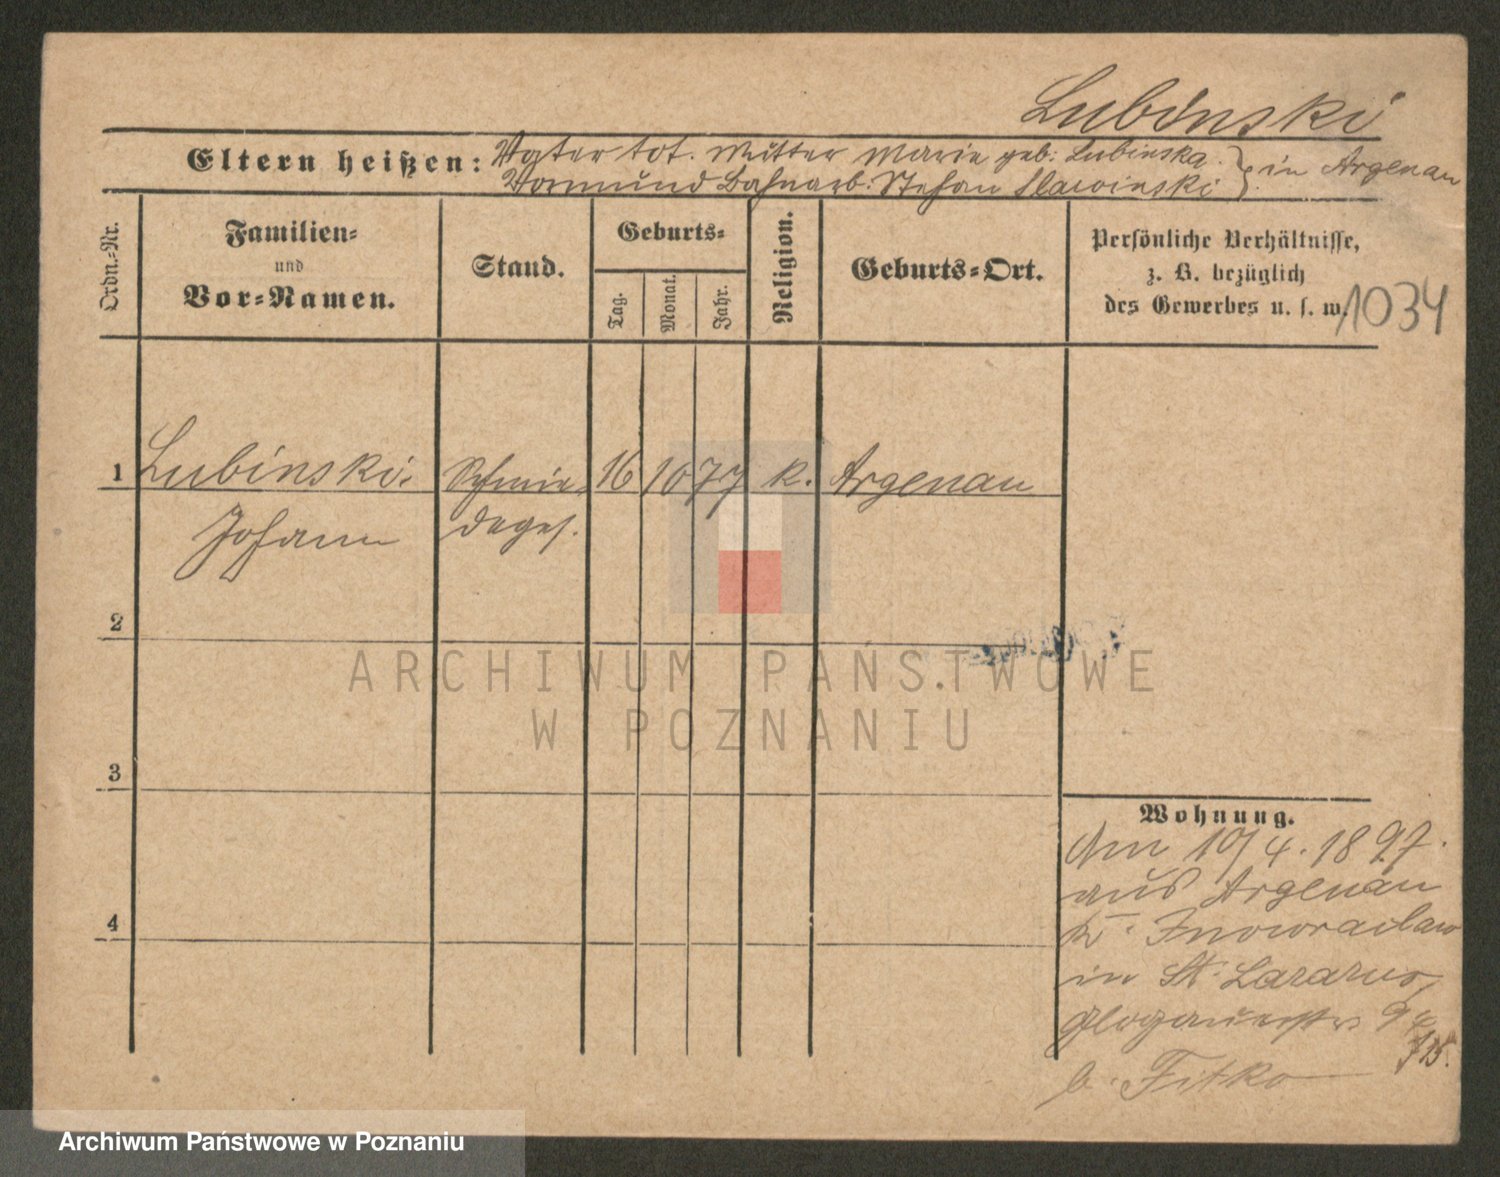 Lubinski
Eltern heißen: Vater tot. Mutter Marie geb: Lubinska. } in Argenau
Vormund Bahnarb. Stefan Slawinski
Ordn.-Nr.
Familien-
und
Vor-Namen.
Stand.
Geburts-
Tag.
Monat.
Jahr.
Religion.
Geburts-Ort.
Persönliche Verhältnisse,
z. B. bezüglich
des Gewerbes u. s. w.
1034
1 Lubinski. Schmie- 16 10 77 k. Argenau
Johann degs.
2
3
4
ARCHIWUM PAŃSTWOWE
W POZNANIU
Wohnung.
Am 10/4. 1897.
aus Argenau
Kr. Inowraclaw
in St. Lazarus,
Glogauerstr 94
b. Fitko
Archiwum Państwowe w Poznaniu